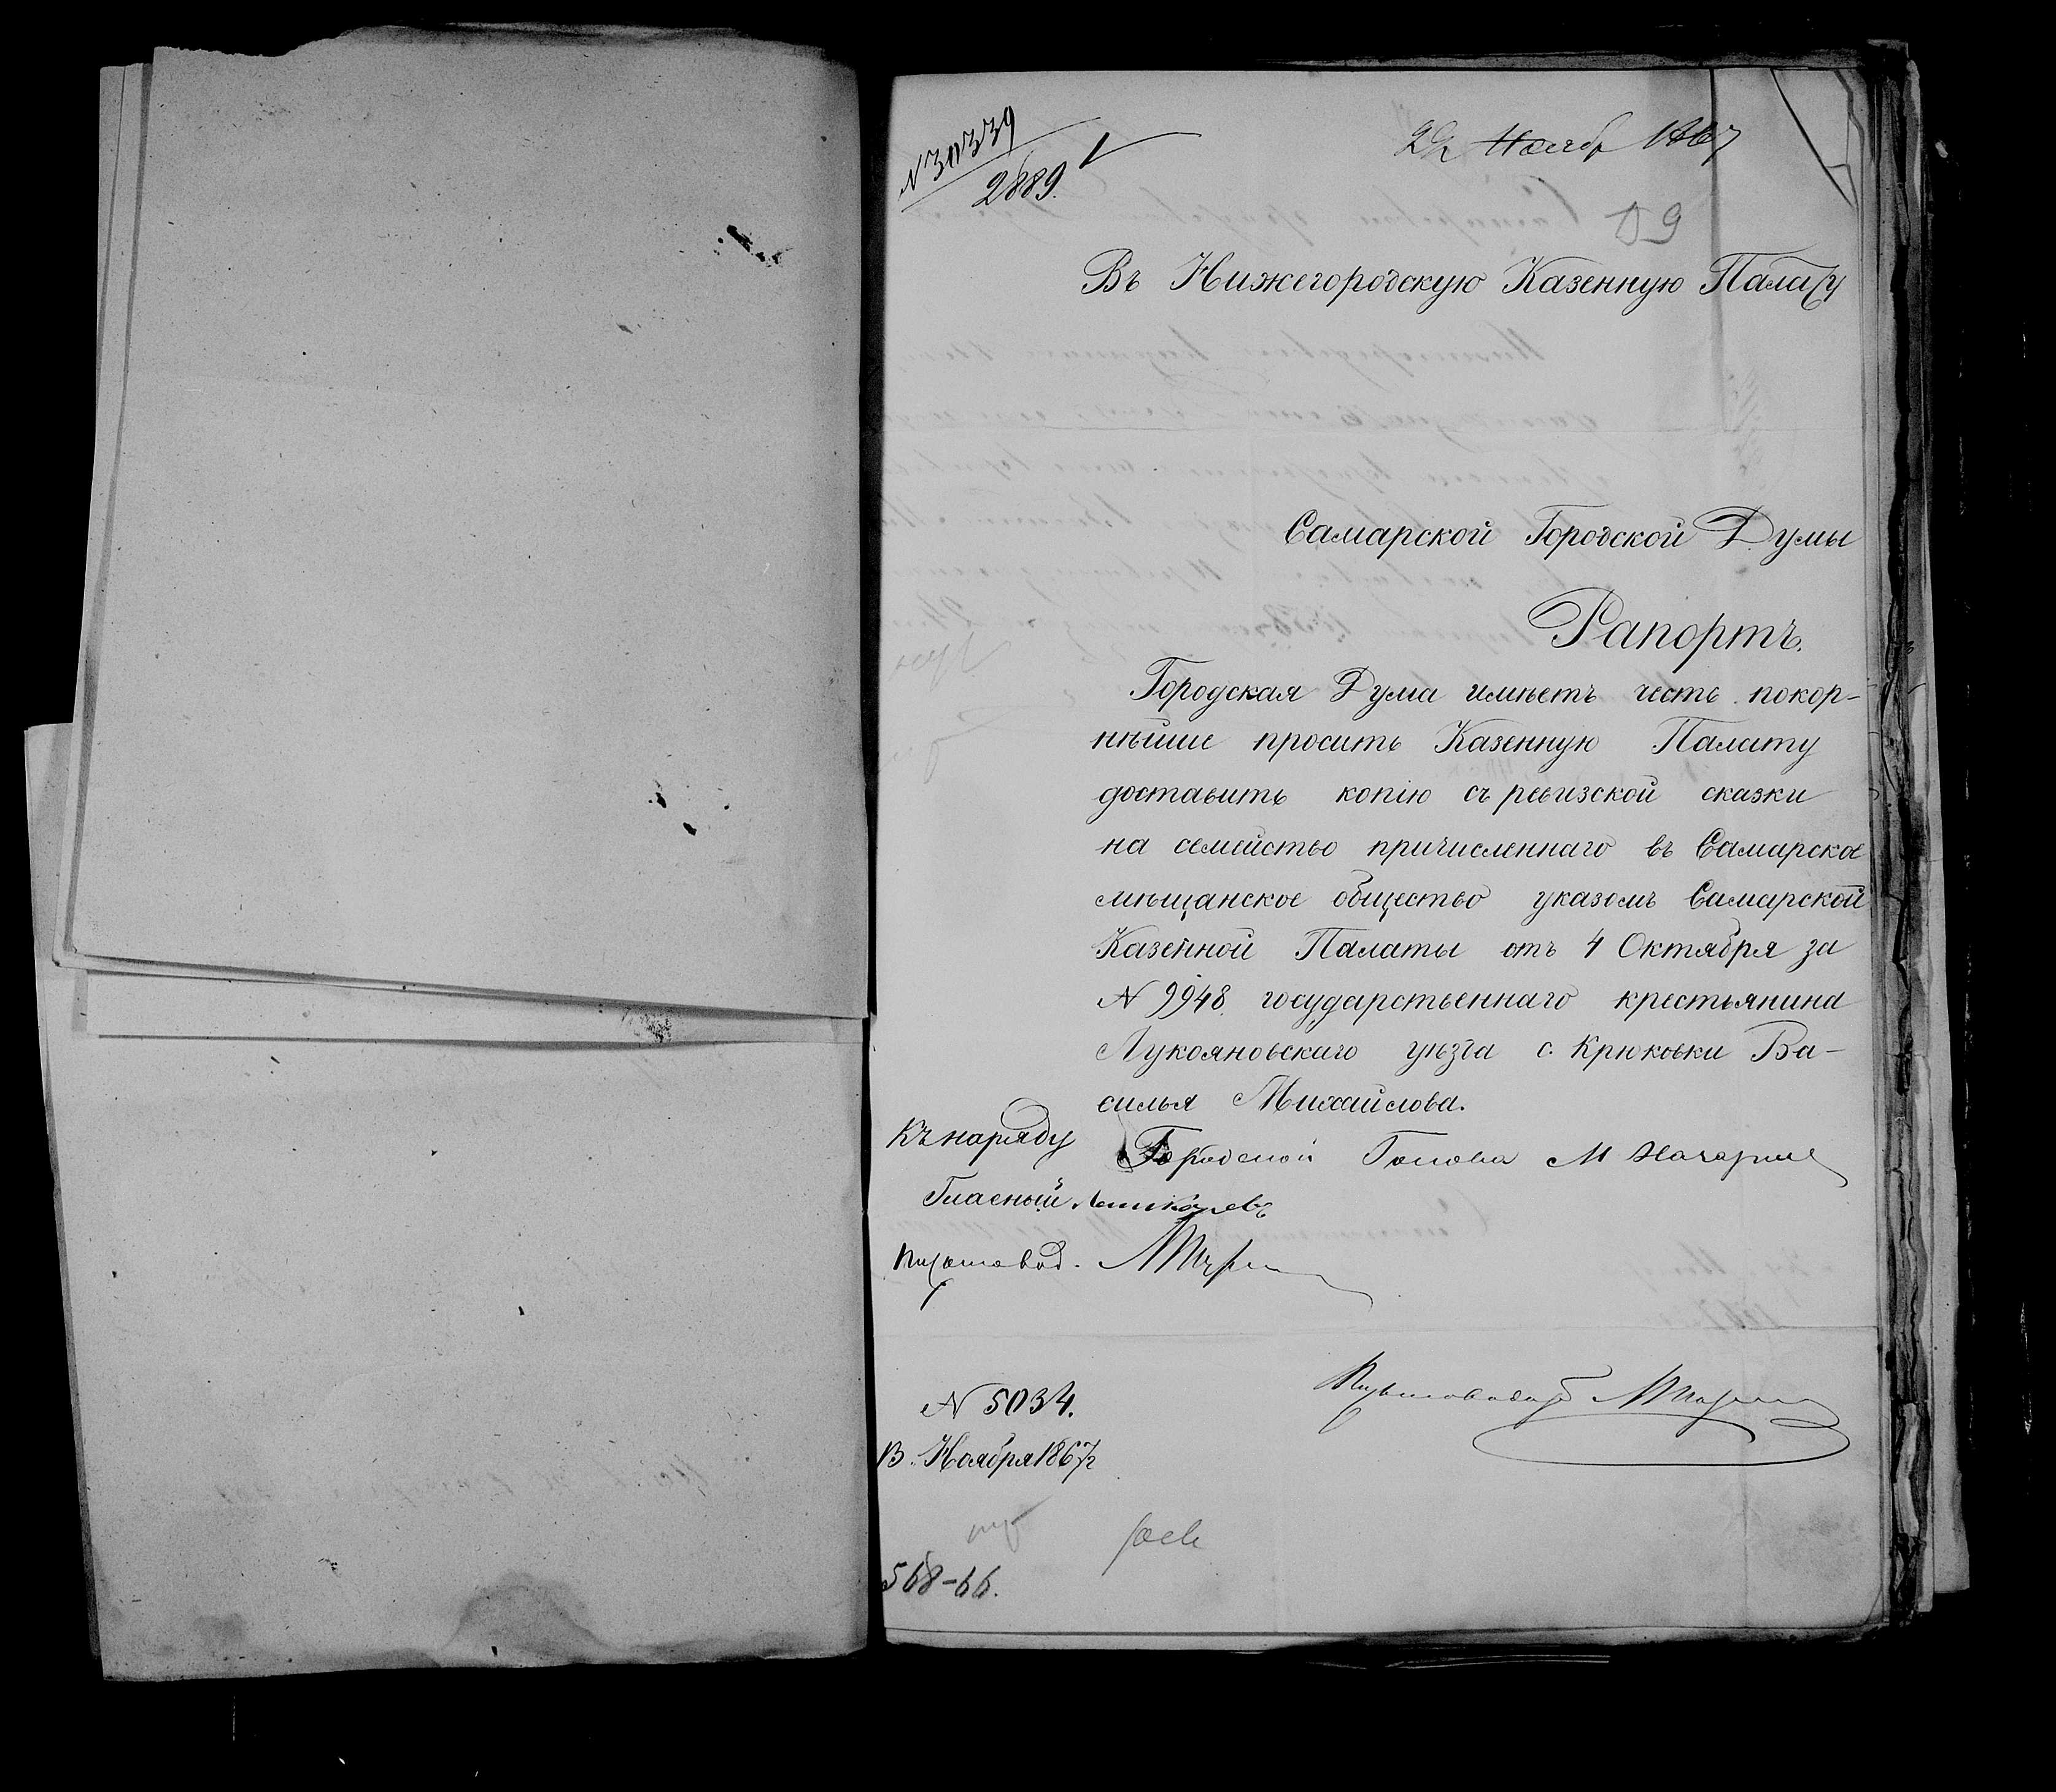 № 30339
2889.
22 Ноябр 1867
Въ Нижегородскую Казенную Палату
Самарской Городской Думы
Рапортъ.
Городская Дума имѣетъ честь покор-
нѣйше просить Казенную Палату
доставить копію съ ревизской сказки
на семейство причисленнаго въ Самарское
мѣщанское общество указомъ Самарской
Казенной Палаты отъ 4 Октября за
№ 9948 государственнаго крестьянина
Лукояновскаго уѣзда с. Крюковки Ва-
силья Михайлова.
Къ наряду
Городской Голова М
Гласный
Письмовод.
Письмоводитель
№ 5034.
13 Ноября 1867 г
568-66.